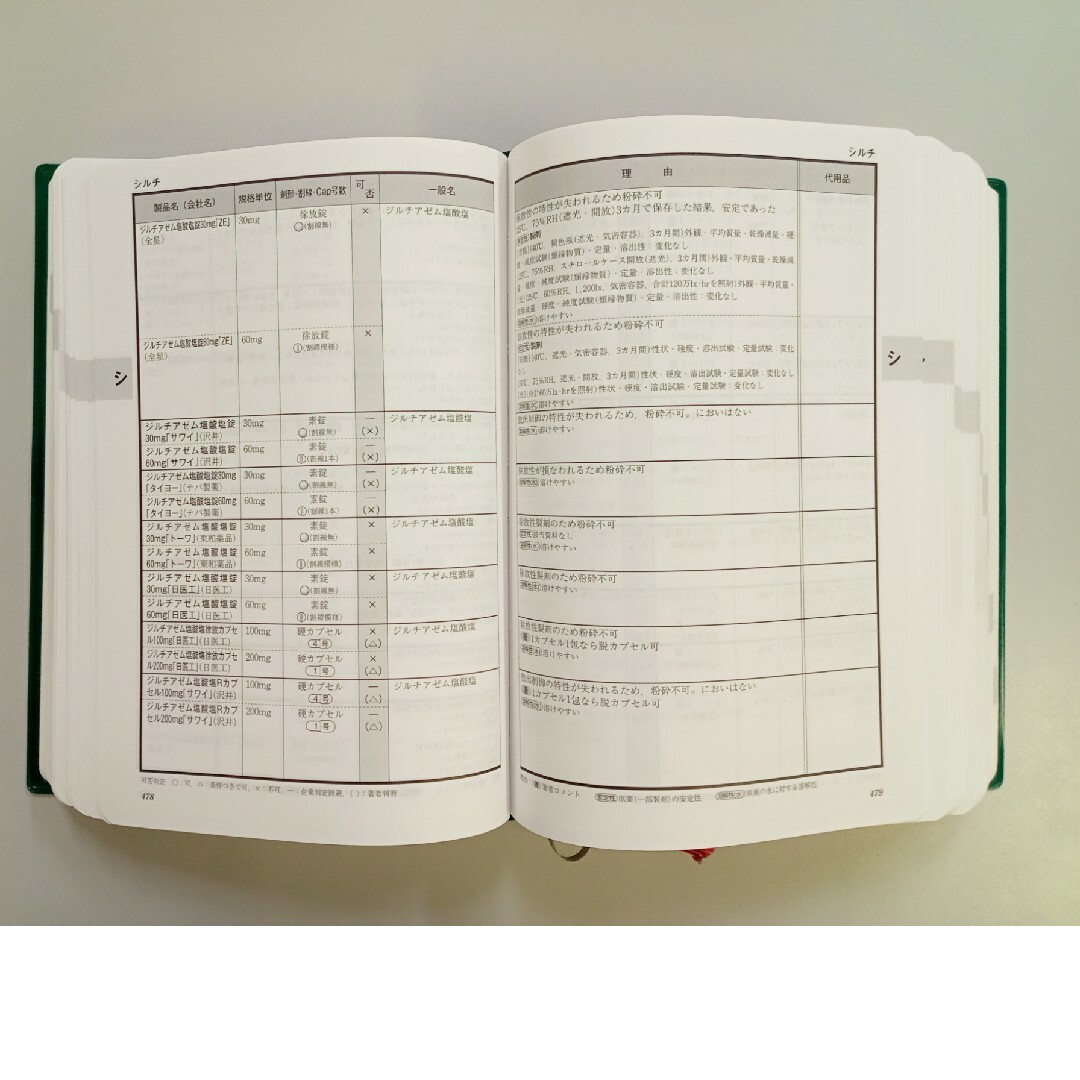 シルチ
製品名(会社名) 規格単位 剤形・割線・Cap号数 可否 一般名
ジルチアゼム塩酸塩錠30mg「ZE」 30mg 徐放錠 × ジルチアゼム塩酸塩
(全星) (割線無)
ジルチアゼム塩酸塩錠60mg「ZE」 60mg 徐放錠 ×
(全星) (割線模様)
ジルチアゼム塩酸塩錠 30mg 素錠 — ジルチアゼム塩酸塩
30mg「サワイ」(沢井) (割線無) (×)
ジルチアゼム塩酸塩錠 60mg 素錠 —
60mg「サワイ」(沢井) (割線1本) (×)
ジルチアゼム塩酸塩錠30mg 30mg 素錠 — ジルチアゼム塩酸塩
「タイヨー」(テバ製薬) (割線無) (×)
ジルチアゼム塩酸塩錠60mg 60mg 素錠 —
「タイヨー」(テバ製薬) (割線1本) (×)
ジルチアゼム塩酸塩錠 30mg 素錠 × ジルチアゼム塩酸塩
30mg「トーワ」(東和薬品) (割線無)
ジルチアゼム塩酸塩錠 60mg 素錠 ×
60mg「トーワ」(東和薬品) (割線模様)
ジルチアゼム塩酸塩錠 30mg 素錠 × ジルチアゼム塩酸塩
30mg「日医工」(日医工) (割線無)
ジルチアゼム塩酸塩錠 60mg 素錠 ×
60mg「日医工」(日医工) (割線模様)
ジルチアゼム塩酸塩徐放カプセ 100mg 硬カプセル × ジルチアゼム塩酸塩
ル100mg「日医工」(日医工) 4号 (△)
ジルチアゼム塩酸塩徐放カプセ 200mg 硬カプセル ×
ル200mg「日医工」(日医工) 1号 (△)
ジルチアゼム塩酸塩Rカプ 100mg 硬カプセル — ジルチアゼム塩酸塩
セル100mg「サワイ」(沢井) 4号 (△)
ジルチアゼム塩酸塩Rカプ 200mg 硬カプセル —
セル200mg「サワイ」(沢井) 1号 (△)
可否判定 ○:可，△:条件つきで可，×:不可，—:企業判定回避，( ):著者判断
478
シ
シルチ
理由 代用品
徐放性の特性が失われるため粉砕不可
25℃，75%RH(遮光・開放)3カ月で保存した結果，安定であった
製剤
(40℃，褐色瓶(遮光・気密容器)，3カ月間)外観・平均質量・乾燥減量・硬
度・純度試験(類縁物質)・定量・溶出性：変化なし
25℃，75%RH，スチロールケース開放(遮光)，3カ月間)外観・平均質量・乾燥減
量・硬度・純度試験(類縁物質)・定量・溶出性：変化なし
(25℃，60%RH，1,200lx，気密容器，合計120万lx·hrを照射)外観・平均質量・
乾燥減量・硬度・純度試験(類縁物質)・定量・溶出性：変化なし
溶解性(水)溶けやすい
徐放性の特性が失われるため粉砕不可
製剤
40℃，遮光・気密容器，3カ月間)性状・硬度・溶出試験・定量試験：変化
なし
75%RH，遮光・開放，3カ月間)性状・硬度・溶出試験・定量試験：変化なし
60万lx·hrを照射)性状・硬度・溶出試験・定量試験：変化なし
溶解性(水)溶けやすい
放出制御の特性が失われるため，粉砕不可。においはない
溶解性(水)溶けやすい
徐放性が損なわれるため粉砕不可
溶解性(水)溶けやすい
徐放性製剤のため粉砕不可
安定性該当資料なし
溶解性(水)溶けやすい
徐放性製剤のため粉砕不可
溶解性(水)溶けやすい
徐放性製剤のため粉砕不可
(著)1カプセル1包なら脱カプセル可
溶解性(水)溶けやすい
放出制御の特性が失われるため，粉砕不可。においはない
(著)1カプセル1包なら脱カプセル可
溶解性(水)溶けやすい
理由 (著)著者コメント 安定性原薬(一部製剤)の安定性 溶解性(水)原薬の水に対する溶解性
479
シ